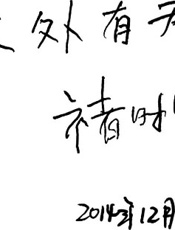 外有
褚时
2014年12月